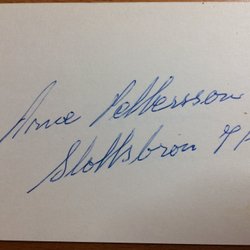 Arne Pettersson
Slottsbron